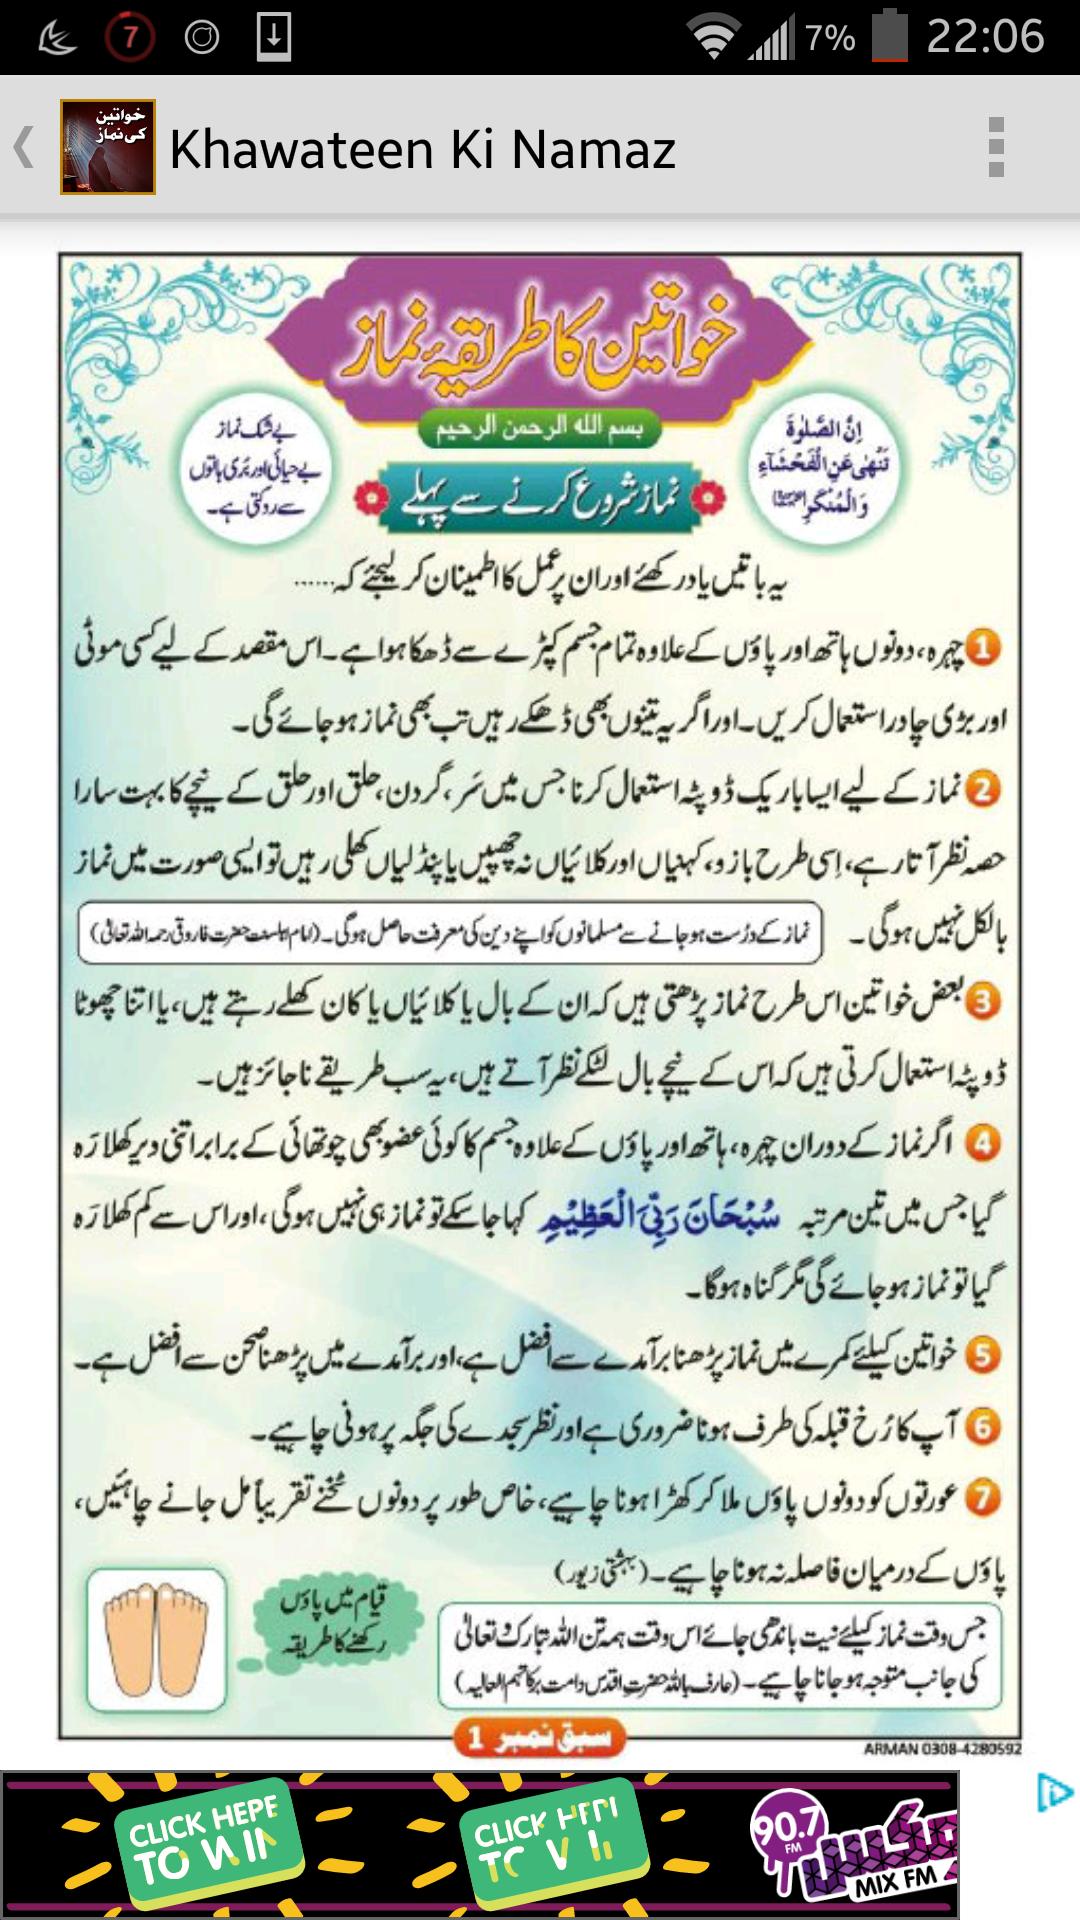 7
7%
22:06
خواتین کی نماز
Khawateen Ki Namaz
خواتین کا طریقۂ نماز
بسم الله الرحمن الرحيم
اِنَّ الصَّلٰوةَ
تَنْهٰى عَنِ الْفَحْشَآءِ
وَالْمُنْكَرِ
بے شک نماز
بے حیائی اور بُری باتوں
سے روکتی ہے۔
نماز شروع کرنے سے پہلے
یہ باتیں یاد رکھئے اور ان پر عمل کا اطمینان کر لیجئے کہ......
1 چہرہ، دونوں ہاتھ اور پاؤں کے علاوہ تمام جسم کپڑے سے ڈھکا ہوا ہے۔ اس مقصد کے لیے کسی موٹی
اور بڑی چادر استعمال کریں۔ اور اگر یہ تینوں بھی ڈھکے رہیں تب بھی نماز ہو جائے گی۔
2 نماز کے لیے ایسا باریک ڈوپٹہ استعمال کرنا جس میں سَر، گردن، حلق اور حلق کے نیچے کا بہت سارا
حصہ نظر آتا رہے، اِسی طرح بازو، کہنیاں اور کلائیاں نہ چھپیں یا پنڈلیاں کھلی رہیں تو ایسی صورت میں نماز
بالکل نہیں ہوگی۔
نماز کے درُست ہو جانے سے مسلمانوں کو اپنے دین کی معرفت حاصل ہوگی۔ (امام اہلسنت حضرت فاروقی رحمہ اللہ تعالیٰ)
3 بعض خواتین اس طرح نماز پڑھتی ہیں کہ ان کے بال یا کلائیاں یا کان کھلے رہتے ہیں، یا اتنا چھوٹا
ڈوپٹہ استعمال کرتی ہیں کہ اس کے نیچے بال لٹکے نظر آتے ہیں، یہ سب طریقے ناجائز ہیں۔
4 اگر نماز کے دوران چہرہ، ہاتھ اور پاؤں کے علاوہ جسم کا کوئی عضو بھی چوتھائی کے برابر اتنی دیر کھلا رَہ
گیا جس میں تین مرتبہ سُبْحَانَ رَبِّيَ الْعَظِيْمِ کہا جا سکے تو نماز ہی نہیں ہوگی، اور اس سے کم کھلا رَہ
گیا تو نماز ہو جائے گی مگر گناہ ہوگا۔
5 خواتین کیلئے کمرے میں نماز پڑھنا برآمدے سے افضل ہے، اور برآمدے میں پڑھنا صحن سے افضل ہے۔
6 آپ کا رُخ قبلہ کی طرف ہونا ضروری ہے اور نظر سجدے کی جگہ پر ہونی چاہیے۔
7 عورتوں کو دونوں پاؤں ملا کر کھڑا ہونا چاہیے، خاص طور پر دونوں ٹخنے تقریباً مل جانے چاہئیں،
پاؤں کے درمیان فاصلہ نہ ہونا چاہیے۔ (بہشتی زیور)
قیام میں پاؤں
رکھنے کا طریقہ
جس وقت نماز کیلئے نیت باندھی جائے اس وقت ہمہ تن اللہ تبارک وتعالیٰ
کی جانب متوجہ ہو جانا چاہیے۔ (عارف باللہ حضرت اقدس دامت برکاتہم العالیہ)
سبق نمبر 1
ARMAN 0308-4280592
CLICK HERE
TO WIN
90.7
FM
ميكس
MIX FM